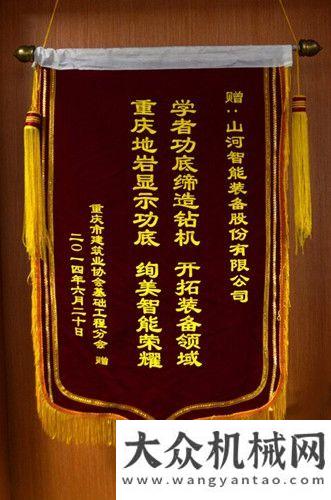 赠：山河智能装备股份有限公司
学者功底缔造钻机 开拓装备领域
重庆地岩显示功底 绚美智能荣耀
重庆市建筑业协会基础工程分会 赠
二〇一四年六月二十日
大众机械网
www.wangyantao.com